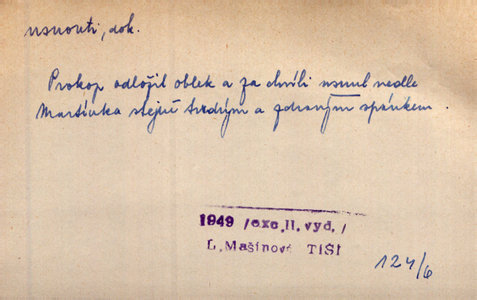 usnouti, dok.
Prokop odložil oblek a za chvíli usnul vedle
Martínka stejně tvrdým a zdravým spánkem.
1949 /exc, II. vyd. /
L. Mašínová TIŠI
124/6